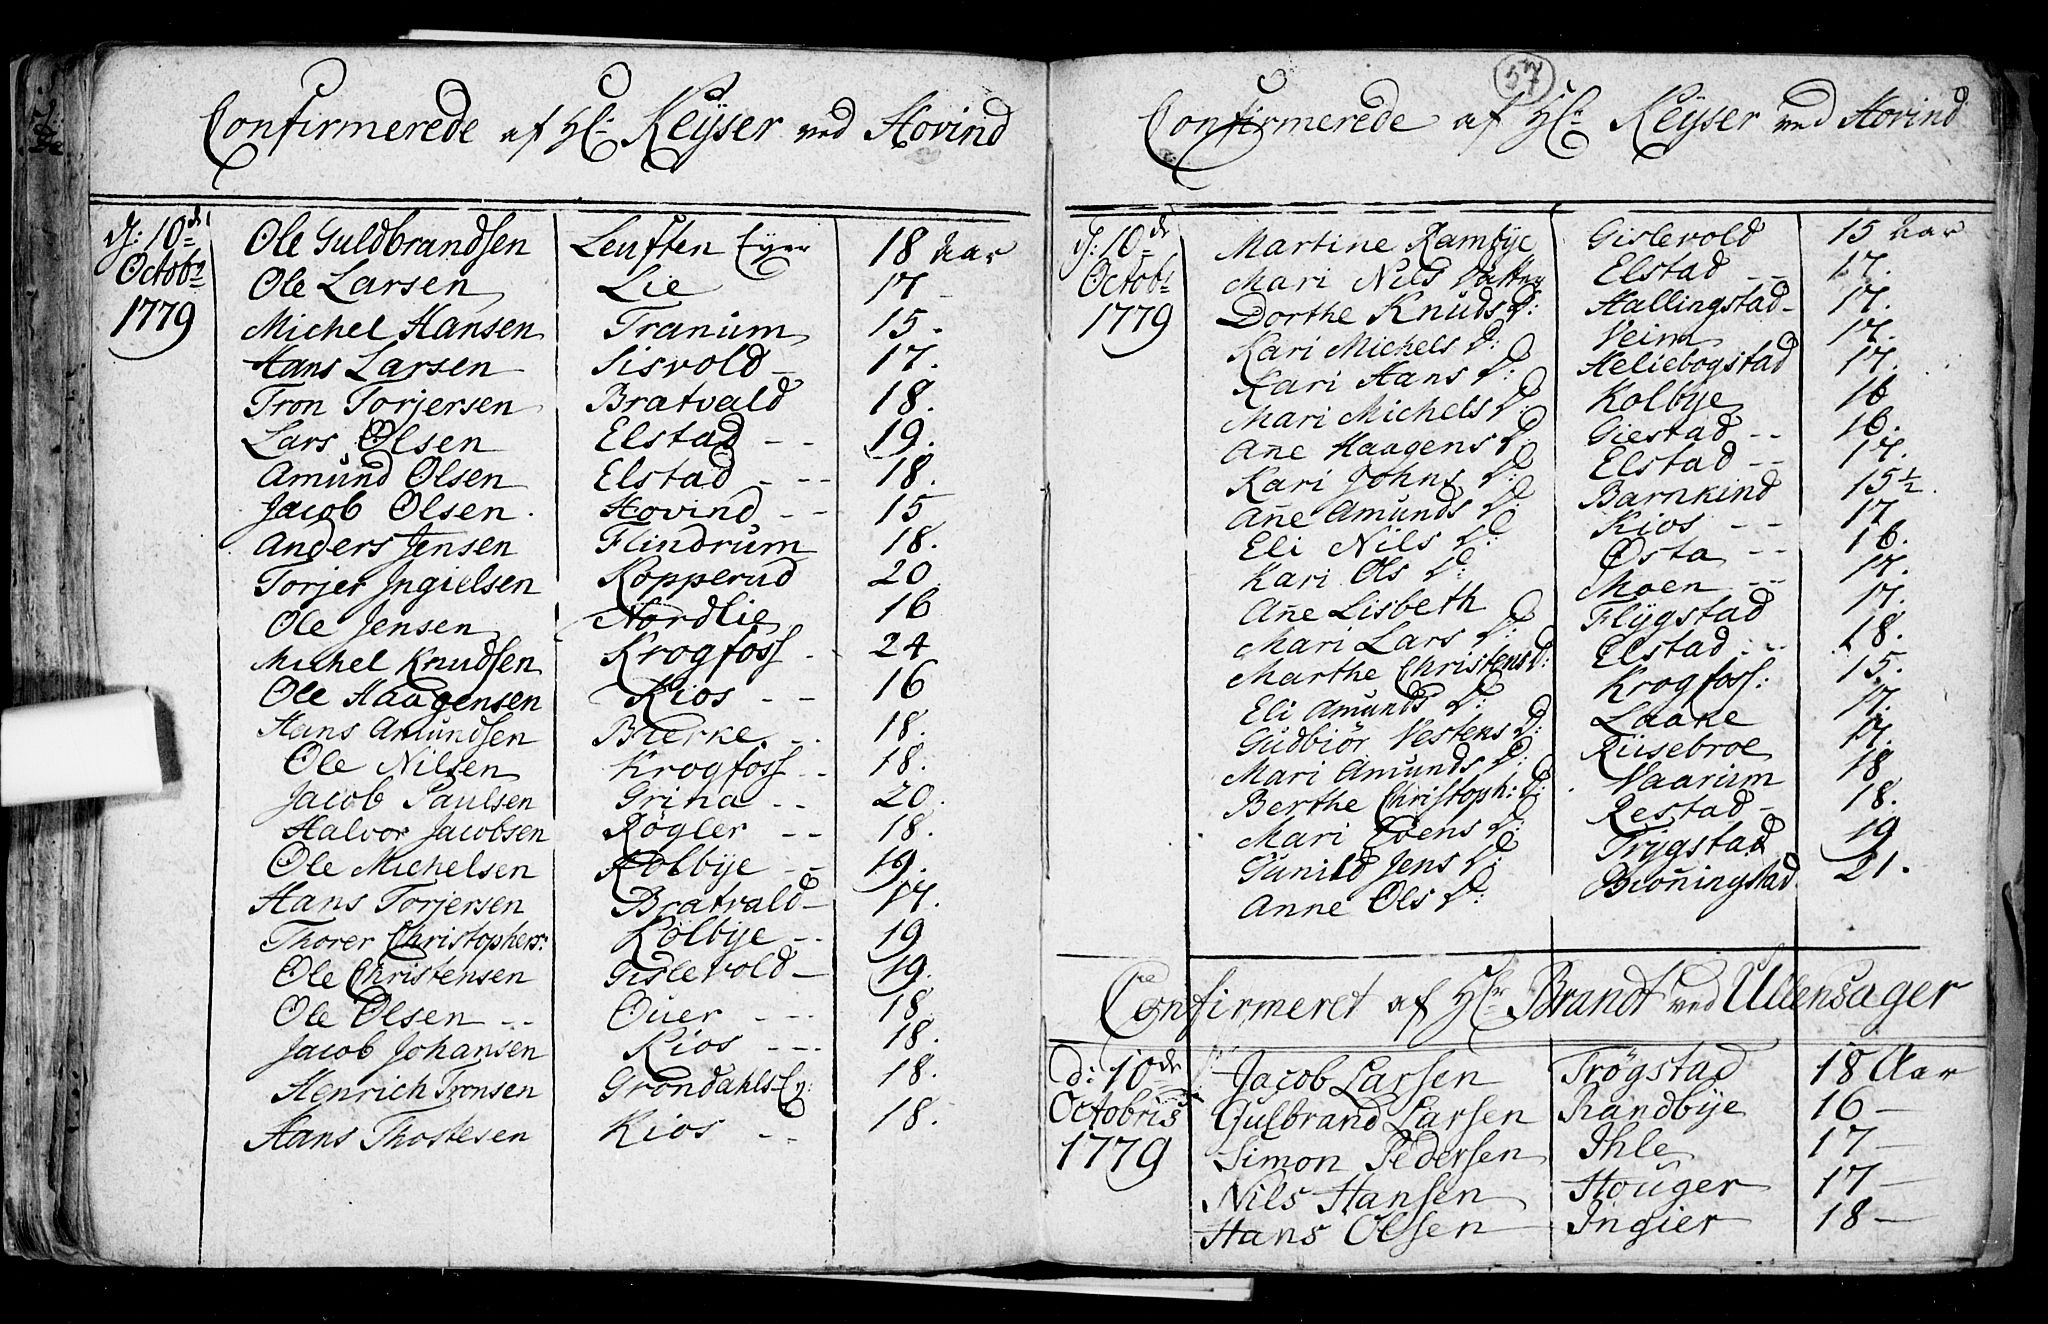 Confirmerede af Hr Keyser ved Hovind
d: 10de Octobr 1779
Ole Guldbrandsen Leuften Eyer 18 Aar
Ole Larsen Lie 17 -
Michel Hansen Tranum 15.
Hans Larsen Sisvold 17.
Tron Torjersen Bratvald 18.
Lars Olsen Elstad - - 19.
Amund Olsen Elstad - -- 18.
Jacob Olsen. Hovind - - 15
Anders Jensen Flindrum 18.
Torjer Ingielsen Kopperud 20
Ole Jensen Nordlie 16
Michel Knudsen Krogfoss - 24
Ole Haagensen Kios - - 16
Hans Amundsen Bierke. - 18.
Ole Nilsen Krogfoss - - 18.
Jacob Paulsen Grina - - 20.
Halvor Jacobsen Røgler - - 18.
Ole Michelsen Kolbye - - 19.
Hans Torjersen Bratvald - 17.
Thorer Christophers: Kolbye - - 19
Ole Christensen Gislevold - 19.
Ole Olsen - - Ouer - - - 18
Jacob Johansen Kios - - - 18.
Henrich Tronsen Grøndahls Ey: 18.
Hans Thostesen Kios - - 18.
57
Confirmerede af Hr Keyser ved Hovind
d: 10de Octobr 1779
Martine Rambye Gislevold 15 Aar
Mari Nils Datter Elstad - - 17.
Dorthe Knuds D: Hallingstad - 17.
Kari Michels D: Veim 17.
Kari Hans D: Heliebogstad 17.
Mari Michels D: Kolbye 16
Ane Haagens D: Giestad - - 16.
Kari Johns D: Elstad - - 17.
Ane Amunds D: Barnkind 15½.
Eli Nils D: Kios - - 17
Kari Ols D: Østa - - 16.
Ane Lisbeth Moen - - 17.
Mari Lars D: Flygstad 17.
Marthe Christens D: Elstad - - 18.
Eli Amunds D: Krogfoss: 15.
Gudbiør Vestens D: Laake 17.
Mari Amunds D: Riisebroe 17.
Berthe Christoph: D: Vaarum 18
Mari Evens D: Restad - 18.
Gunild Jens D: Trygstad 19
Anne Ols D: Bröningstad 21.
Confirmeret af Hr Brandt ved Ullensager
d: 10de Octobris 1779
Jacob Larsen Trögstad 18 Aar
Gulbrand Larsen Randbye 16 -
Simon Pedersen Ihle 17 -
Nils Hansen Houger 17 -
Hans Olsen Ingier 18 -